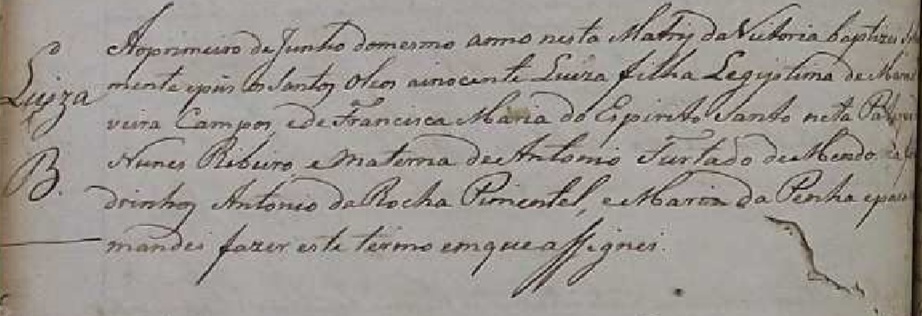 Aoprimeiro de Junho domesmo anno nesta Matriz da Victoria baptizei
Luiza
mente epus os Santos Oleos ainocente Luiza filha Legiptima de
veira Campos, ede Francisca Maria do Espirito Santo neta
B.
Nunes Ribeiro e Materna de Antonio Furtado de Mendo
drinhos Antonio da Rocha Pimentel, e Maria da Penha
mandei fazer este termo emque assignei.